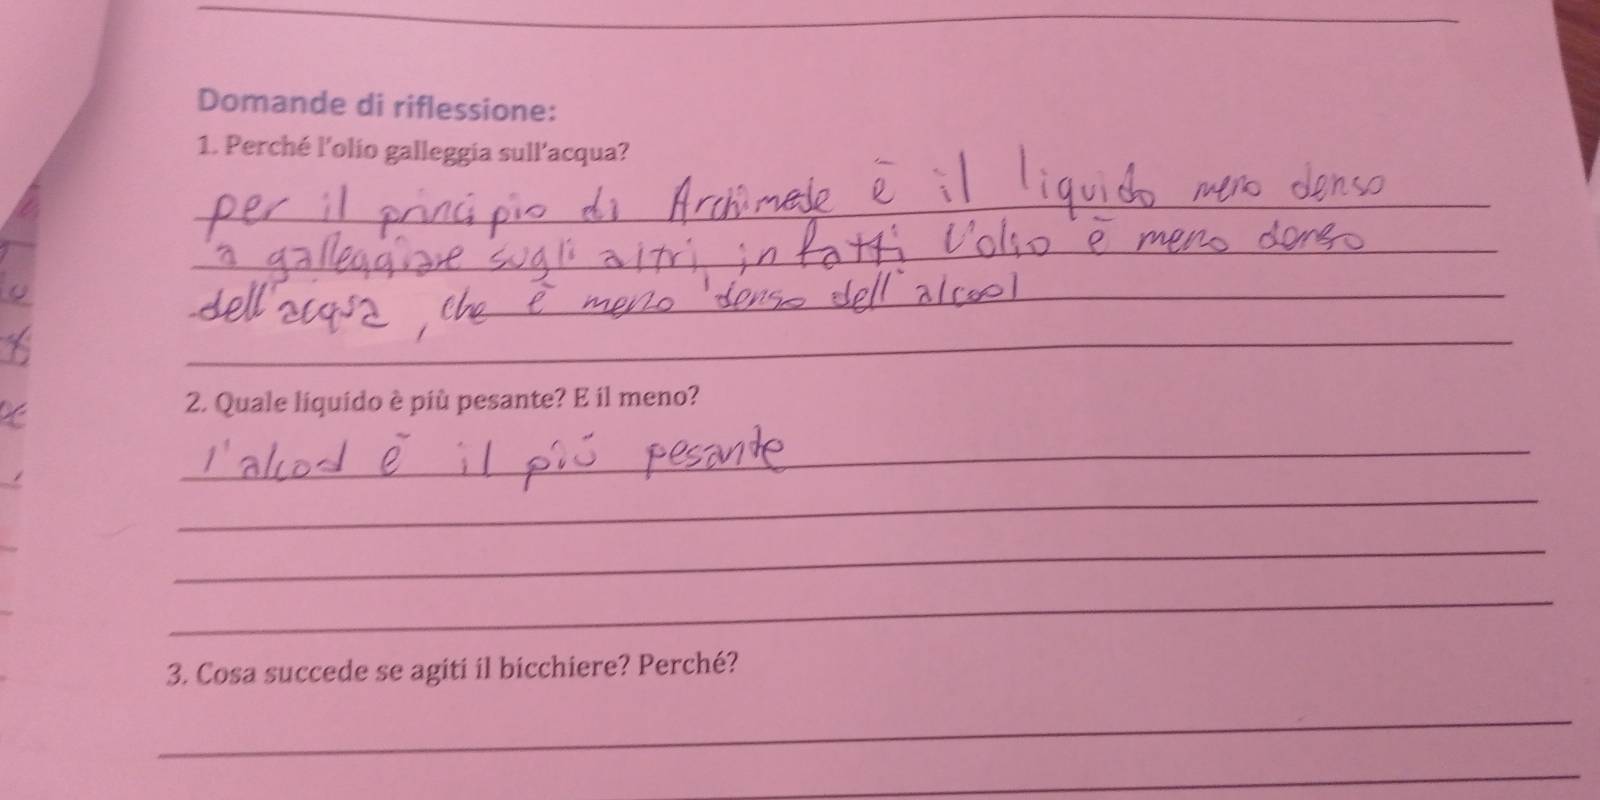 Domande di riflessione:
1. Perché l'olio galleggia sull'acqua?
per il principio di Archimede è il liquido meno denso
a galleggiare sugli altri, infatti l'olio è meno denso
dell'acqua, che è meno denso dell'alcool
2. Quale liquido è più pesante? E il meno?
l'alcool è il più pesante
3. Cosa succede se agiti il bicchiere? Perché?